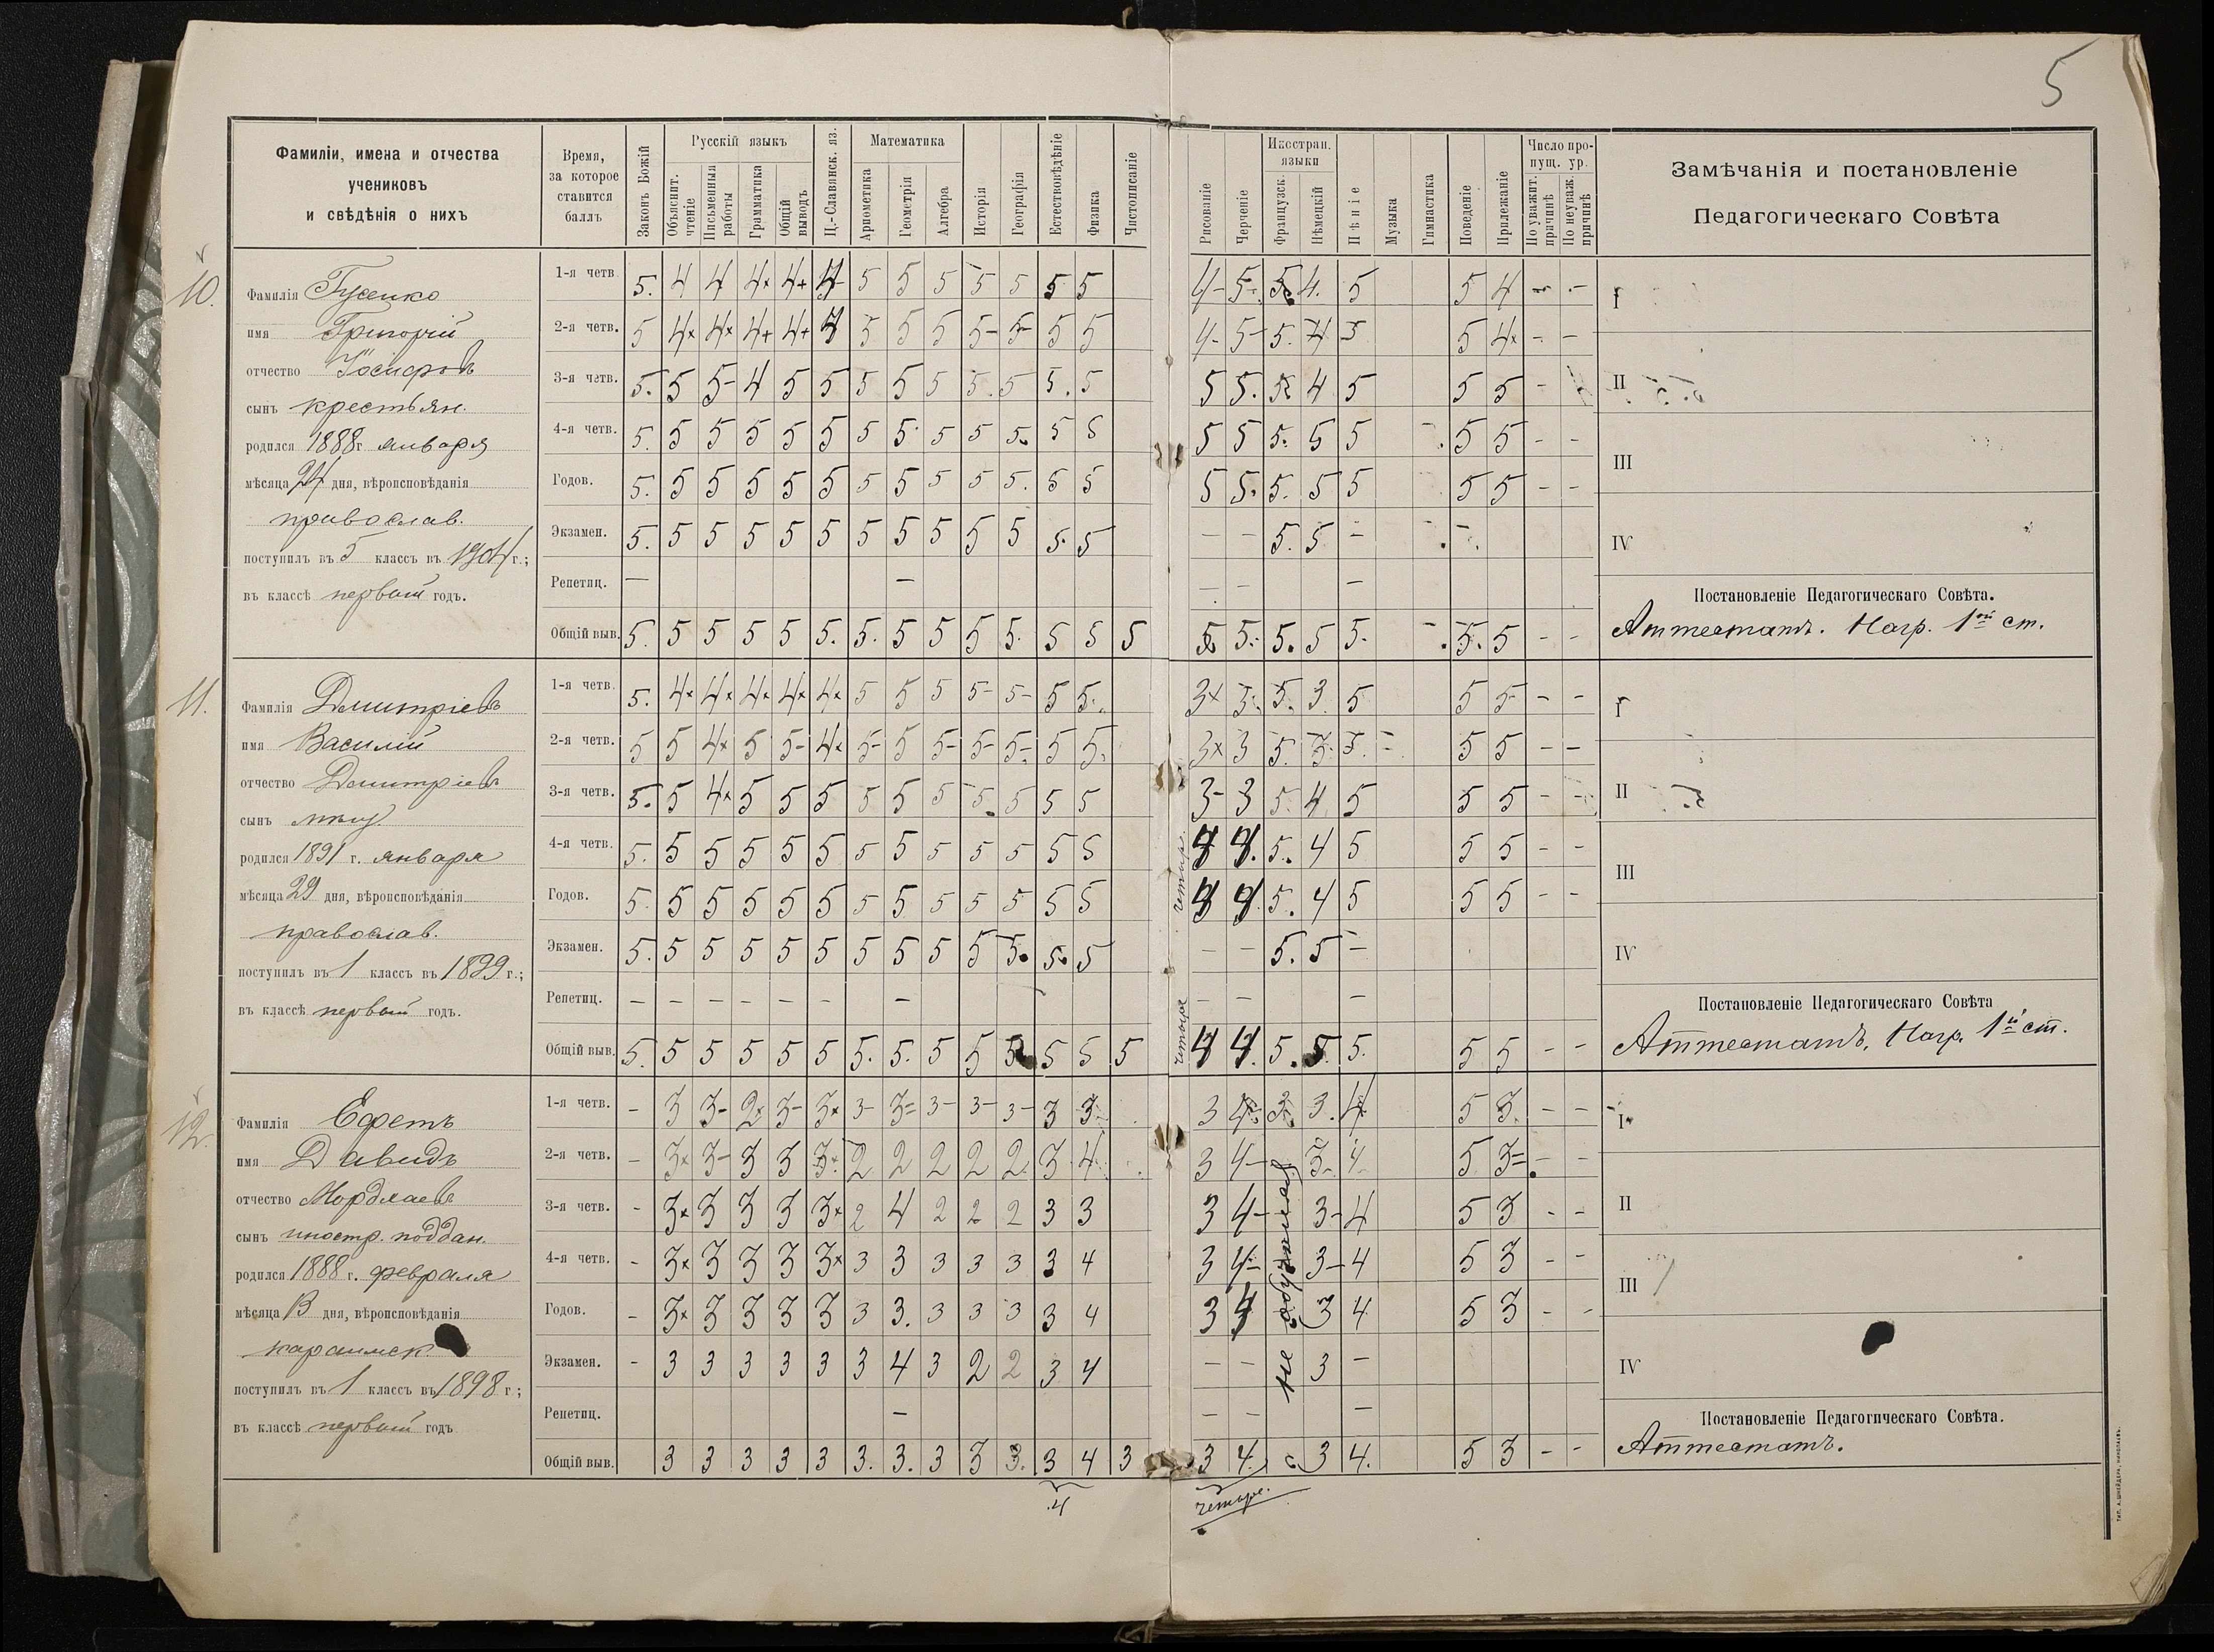 5
Фамиліи, имена и отчества
учениковъ
и свѣдѣнія о нихъ
Время,
за которое
ставится
баллъ
Законъ Божій
Русскій языкъ
Объяснит. чтеніе
Письменныя работы
Грамматика
Общій выводъ
Ц.-Славянск. яз.
Математика
Ариѳметика
Геометрія
Алгебра
Исторія
Географія
Естествовѣдѣніе
Физика
Чистописаніе
Рисованіе
Черченіе
Иностран. языки
Французск.
Нѣмецкій
Пѣніе
Музыка
Гимнастика
Поведеніе
Прилежаніе
Число пропущ. ур.
По уважит. причинѣ
По неуваж. причинѣ
Замѣчанія и постановленіе
Педагогическаго Совѣта
10.
Фамилія Гусенко
имя Григорій
отчество Іосифовъ
сынъ крестьян.
родился 1888 г. января
мѣсяца 24 дня, вѣроисповѣданія
православ.
поступилъ въ 5 классъ въ 1904 г.;
въ классѣ первый годъ.
1-я четв. 5. 4 4 4× 4+ 4- 5 5 5 5 5 5 5 4- 5- 5 4. 5 5 4 - -
2-я четв. 5 4× 4× 4+ 4+ 4 5 5 5 5- 5- 5 5 4- 5- 5. 4 5 5 4× - -
3-я четв. 5. 5 5- 4 5 5 5 5 5 5. 5 5. 5 5 5. 5 4 5 5 5 -
4-я четв. 5. 5 5 5 5 5 5 5 5 5 5. 5 5 5 5 5. 5 5 5 5 - -
Годов. 5. 5 5 5 5 5 5 5 5 5 5. 5 5 5 5. 5. 5 5 5 5 - -
Экзамен. 5. 5 5 5 5 5 5 5 5 5 5 5. 5 - - 5. 5 -
Репетиц. — — - - -
Общій выв. 5. 5 5 5 5 5. 5. 5 5 5 5. 5 5 5 5 5. 5. 5 5. 5. 5 - -
I
II
III
IV
Постановленіе Педагогическаго Совѣта.
Аттестатъ. Нагр. 1ой ст.
11.
Фамилія Дмитріевъ
имя Василій
отчество Дмитріевъ
сынъ мѣщ.
родился 1891 г. января
мѣсяца 29 дня, вѣроисповѣданія
православ.
поступилъ въ 1 классъ въ 1899 г.;
въ классѣ первый годъ.
1-я четв. 5. 4× 4× 4× 4× 4× 5 5 5 5- 5- 5 5. 3× 3. 5. 3. 5 5 5 - -
2-я четв. 5 5 4× 5 5- 4× 5- 5 5- 5- 5- 5 5. 3× 3 5. 3 5. - 5 5 - -
3-я четв. 5. 5 4× 5 5 5 5 5 5 5. 5 5 5 3- 3 5 4 5 5 5 - -
4-я четв. 5. 5 5 5 5 5 5 5 5 5 5 5 5 4 4. 5. 4 5 5 5 - -
Годов. 5. 5 5 5 5 5 5 5 5 5 5 5 5 4 4 5. 4 5 5 5 - -
четыре
Экзамен. 5. 5 5 5 5 5 5 5 5 5 5. 5. 5 - - 5. 5 -
Репетиц. - - - - - - - - - -
Общій выв. 5. 5 5 5 5 5 5. 5. 5 5 5 5 5 5 4 4. 5. 5. 5. 5 5 - -
четыре
I
II
III
IV
Постановленіе Педагогическаго Совѣта
Аттестатъ. Нагр. 1й ст.
12.
Фамилія Ефетъ
имя Давидъ
отчество Мордхаевъ
сынъ иностр. поддан.
родился 1888 г. февраля
мѣсяца 13 дня, вѣроисповѣданія
караимск.
поступилъ въ 1 классъ въ 1898 г.;
въ классѣ первый годъ
1-я четв. - 3 3- 2× 3- 3× 3- 3= 3- 3- 3- 3 3- 3 4- 3 3. 4 5 3. - -
2-я четв. - 3× 3- 3 3 3× 2 2 2 2 2. 3 4 3 4- 3- 4 5 3= - -
3-я четв. - 3× 3 3 3 3× 2 4 2 2 2 3 3 3 4- 3- 4 5 3 - -
4-я четв. - 3× 3 3 3 3× 3 3 3 3 3 3 4 3 4- 3- 4 5 3 - -
Годов. - 3× 3 3 3 3 3 3. 3 3 3 3 4 3 4 3 4 5 3 - -
Экзамен. - 3 3 3 3 3 3 4 3 2 2 3 4 - - 3 -
Репетиц. - - - -
Общій выв. 3 3 3 3 3 3. 3. 3 3 3. 3 4 3 3 4. 3 4. 5 3 - -
не обучался
4
четыре.
I
II
III
IV
Постановленіе Педагогическаго Совѣта.
Аттестатъ.
ТИП. А. ШНЕЙДЕРА, НИКОЛАЕВЪ.